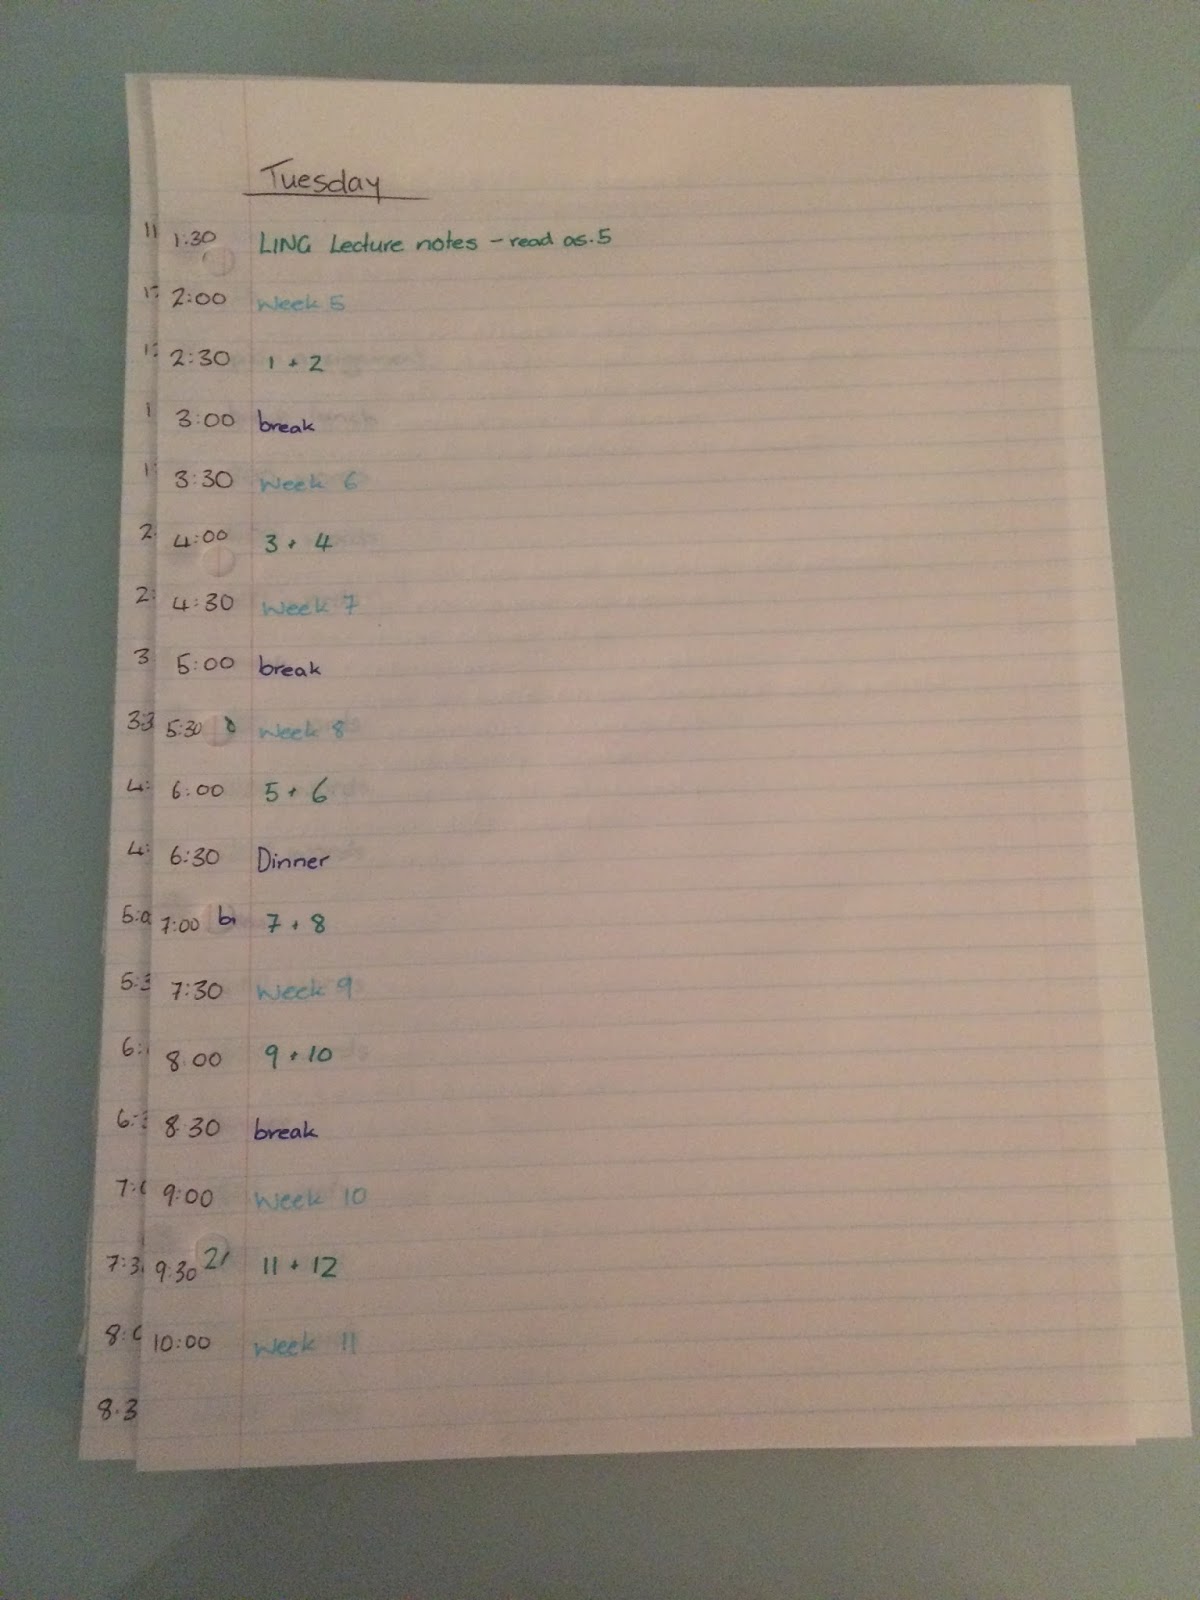 Tuesday
11 1:30 LING Lecture notes - read as.5
2:00 Week 5
2:30 1 + 2
1 3:00 break
3:30 Week 6
2 4:00 3 + 4
2: 4:30 Week 7
3 5:00 break
3:3 5:30 Week 8
4: 6:00 5 + 6
4: 6:30 Dinner
5:0 7:00 b 7 + 8
5:3 7:30 Week 9
6: 8:00 9 + 10
6: 8:30 break
7: 9:00 Week 10
7:3 9:30 2 11 + 12
8: 10:00 Week 11
8:3